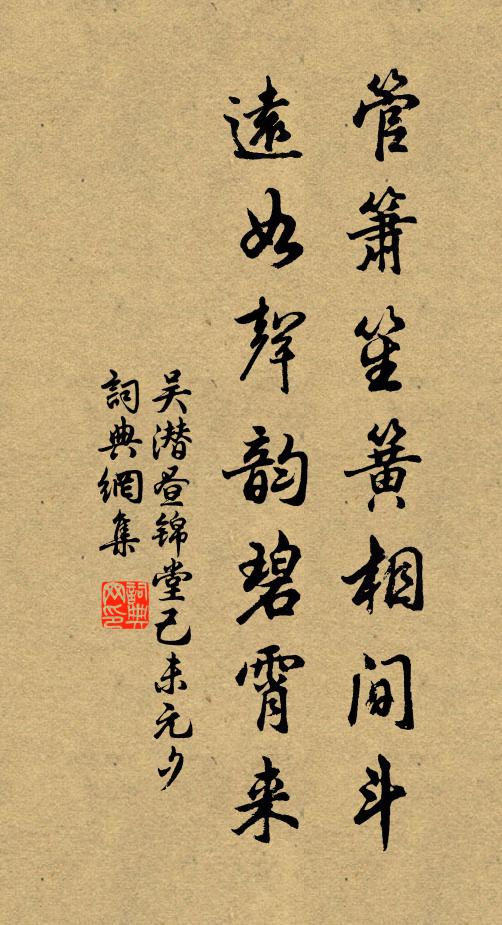 管簫笙簧相间斗
遠如聲韵碧霄来
吴潜昼锦堂己未元夕
詞典網集
詞典网印